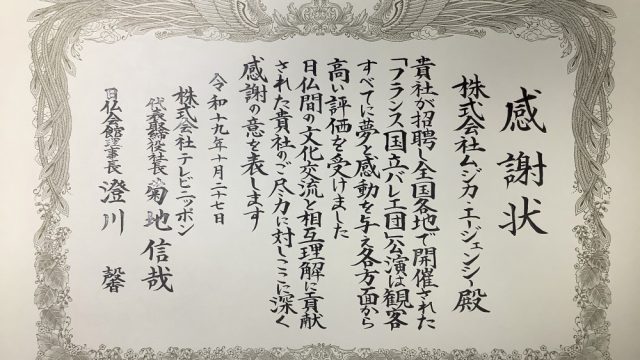 感謝状
株式会社ムジカ・エージェンシー殿
貴社が招聘し全国各地で開催された
「フランス国立バレエ団」公演は観客
すべてに夢と感動を与え各方面から
高い評価を受けました
日仏間の文化交流と相互理解に貢献
された貴社のご尽力に対しここに深く
感謝の意を表します
令和十九年十月二十七日
株式会社テレビニッポン
代表取締役社長 菊地信哉
日仏会館理事長 澄川馨